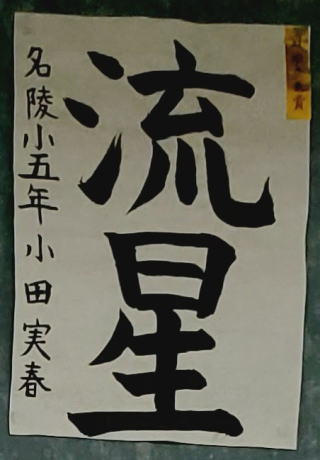 流星
名陵小五年小田実春